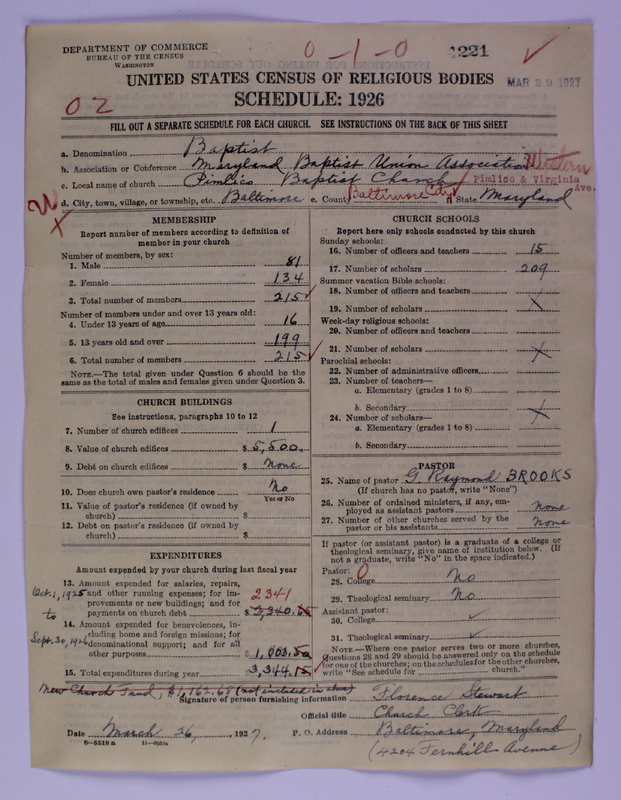 DEPARTMENT OF COMMERCE
BUREAU OF THE CENSUS
WASHINGTON
0-1-0
1221
MAR 29 1927
UNITED STATES CENSUS OF RELIGIOUS BODIES
SCHEDULE: 1926
02
FILL OUT A SEPARATE SCHEDULE FOR EACH CHURCH. SEE INSTRUCTIONS ON THE BACK OF THIS SHEET
a. Denomination Baptist
b. Association or Conference Maryland Baptist Union Association Western
c. Local name of church Pimlico Baptist Church Pimlico & Virginia Ave.
d. City, town, village, or township, etc. Baltimore e. County Baltimore City f. State Maryland
MEMBERSHIP
Report number of members according to definition of member in your church
Number of members, by sex:
1. Male 81
2. Female 134
3. Total number of members 215
Number of members under and over 13 years old:
4. Under 13 years of age 16
5. 13 years old and over 199
6. Total number of members 215
NOTE.—The total given under Question 6 should be the same as the total of males and females given under Question 3.
CHURCH BUILDINGS
See instructions, paragraphs 10 to 12
7. Number of church edifices 1
8. Value of church edifices $5,500.
9. Debt on church edifices $ None
10. Does church own pastor's residence No
Yes or No
11. Value of pastor's residence (if owned by church) $
12. Debt on pastor's residence (if owned by church) $
EXPENDITURES
Amount expended by your church during last fiscal year
Oct. 1, 1925 to Sept. 30, 1926
13. Amount expended for salaries, repairs, and other running expenses; for improvements or new buildings; and for payments on church debt 2341 $2,340.65
14. Amount expended for benevolences, including home and foreign missions; for denominational support; and for all other purposes $1,003.50
15. Total expenditures during year 3,344.15
New Church Fund, $1,162.68 (not included in above)
CHURCH SCHOOLS
Report here only schools conducted by this church
Sunday schools:
16. Number of officers and teachers 15
17. Number of scholars 209
Summer vacation Bible schools:
18. Number of officers and teachers
19. Number of scholars X
Week-day religious schools:
20. Number of officers and teachers
21. Number of scholars X
Parochial schools:
22. Number of administrative officers
23. Number of teachers—
a. Elementary (grades 1 to 8)
b. Secondary X
24. Number of scholars—
a. Elementary (grades 1 to 8)
b. Secondary
PASTOR
25. Name of pastor G. Raymond BROOKS
(If church has no pastor, write "None")
26. Number of ordained ministers, if any, employed as assistant pastors none
27. Number of other churches served by the pastor or his assistants none
If pastor (or assistant pastor) is a graduate of a college or theological seminary, give name of institution below. (If not a graduate, write "No" in the space indicated.)
Pastor: 0
28. College No
29. Theological seminary No
Assistant pastor:
30. College
31. Theological seminary
NOTE.—Where one pastor serves two or more churches, Questions 28 and 29 should be answered only on the schedule for one of the churches; on the schedules for the other churches, write "See schedule for church."
Signature of person furnishing information Florence Stewart
Official title Church Clerk
Date March 26, 1927. P. O. Address Baltimore, Maryland
8—5518 a
(4204 Fernhill Avenue)